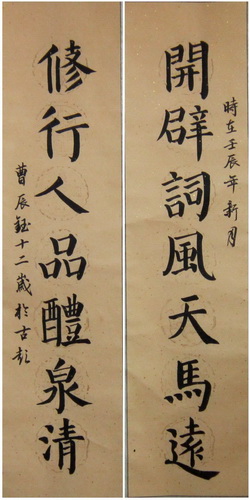 時在壬辰年新月
開辟詞風天馬遠
修行人品醴泉清
曹辰鈺十二歲於古彭